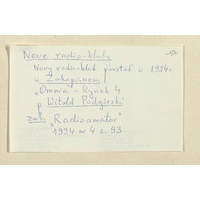 Nowe radio-kluby
Nowy radio-klub powstał w 1924.
w Zakopanem
„Omnia" - Rynek 4
p Witold Podgórski
"Radioamator"
1924 nr 4 s. 93